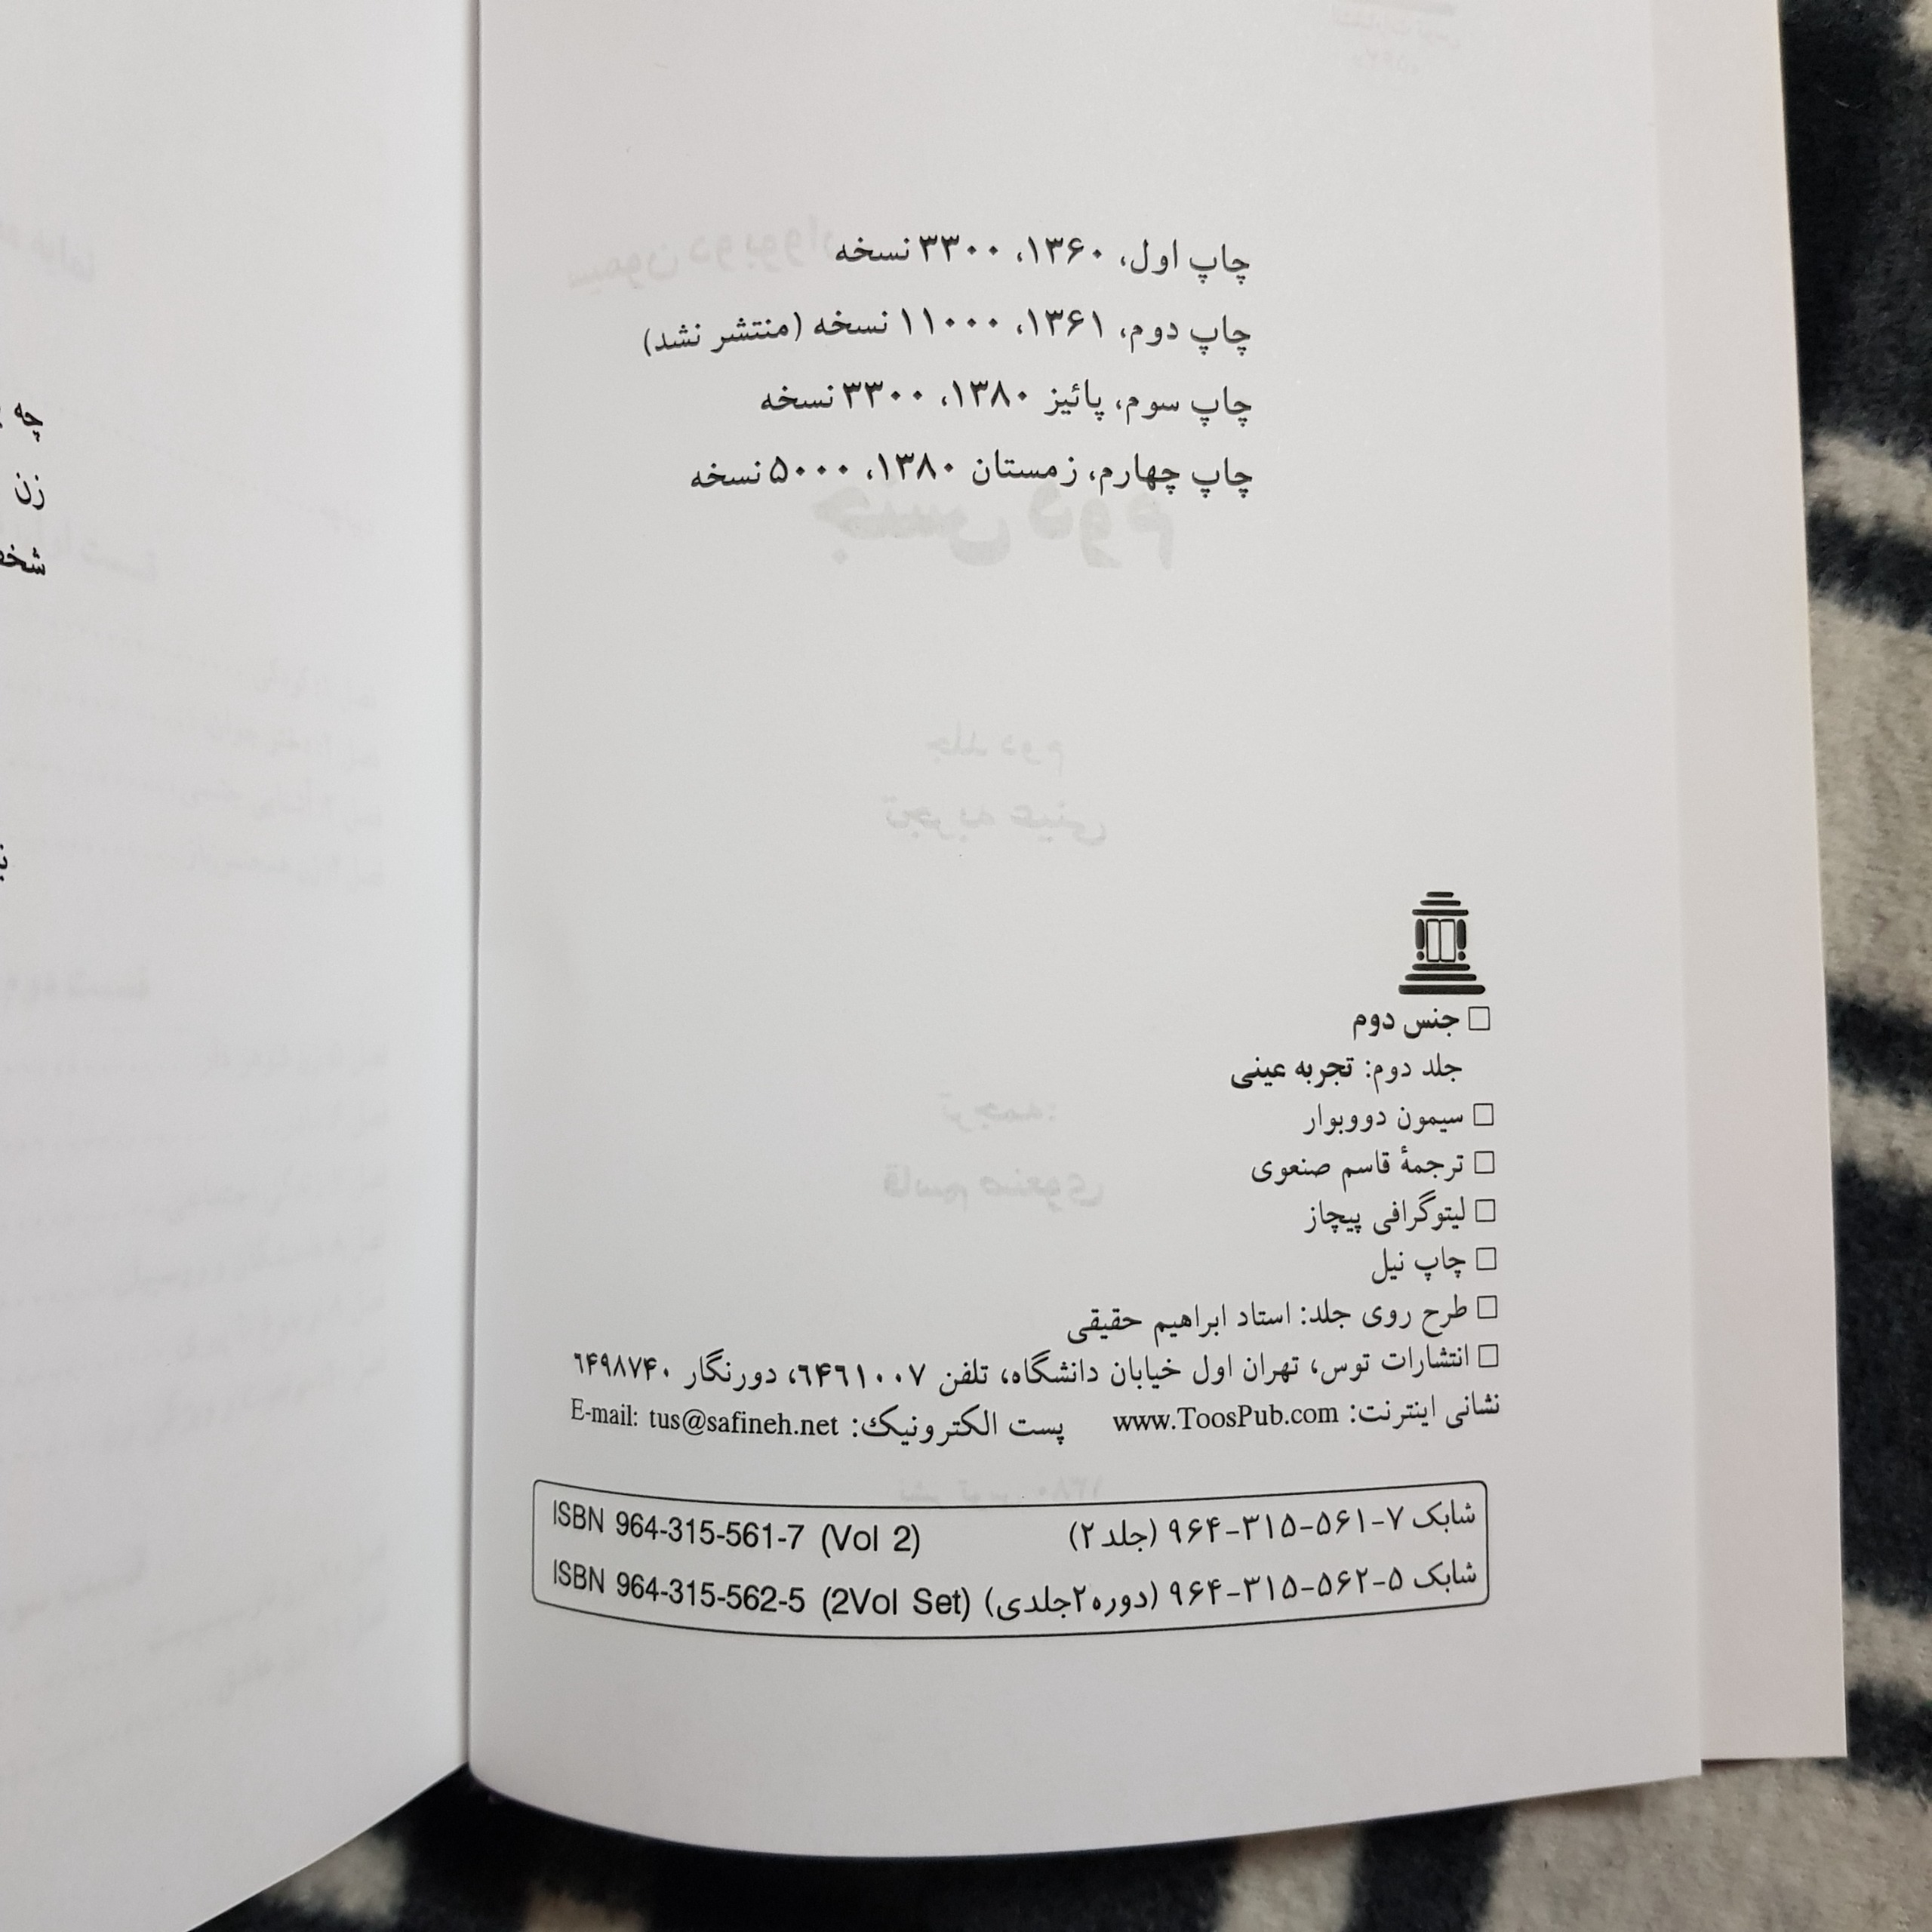 چاپ اول، ۱۳۶۰، ۳۳۰۰ نسخه
چاپ دوم، ۱۳۶۱، ۱۱۰۰۰ نسخه (منتشر نشد)
چاپ سوم، پائیز ۱۳۸۰، ۳۳۰۰ نسخه
چاپ چهارم، زمستان ۱۳۸۰، ۵۰۰۰ نسخه
□ جنس دوم
جلد دوم: تجربه عینی
□ سیمون دووبوار
□ ترجمهٔ قاسم صنعوی
□ لیتوگرافی پیچاز
□ چاپ نیل
□ طرح روی جلد: استاد ابراهیم حقیقی
□ انتشارات توس، تهران اول خیابان دانشگاه، تلفن ۶۴۶۱۰۰۷، دورنگار ۶۴۹۸۷۴۰
نشانی اینترنت: www.ToosPub.com پست الکترونیك: E-mail: tus@safineh.net
شابک ۷-۵۶۱-۳۱۵-۹۶۴ (جلد ۲) ISBN 964-315-561-7 (Vol 2)
شابک ۵-۵۶۲-۳۱۵-۹۶۴ (دوره ۲جلدی) ISBN 964-315-562-5 (2Vol Set)
چه
زن